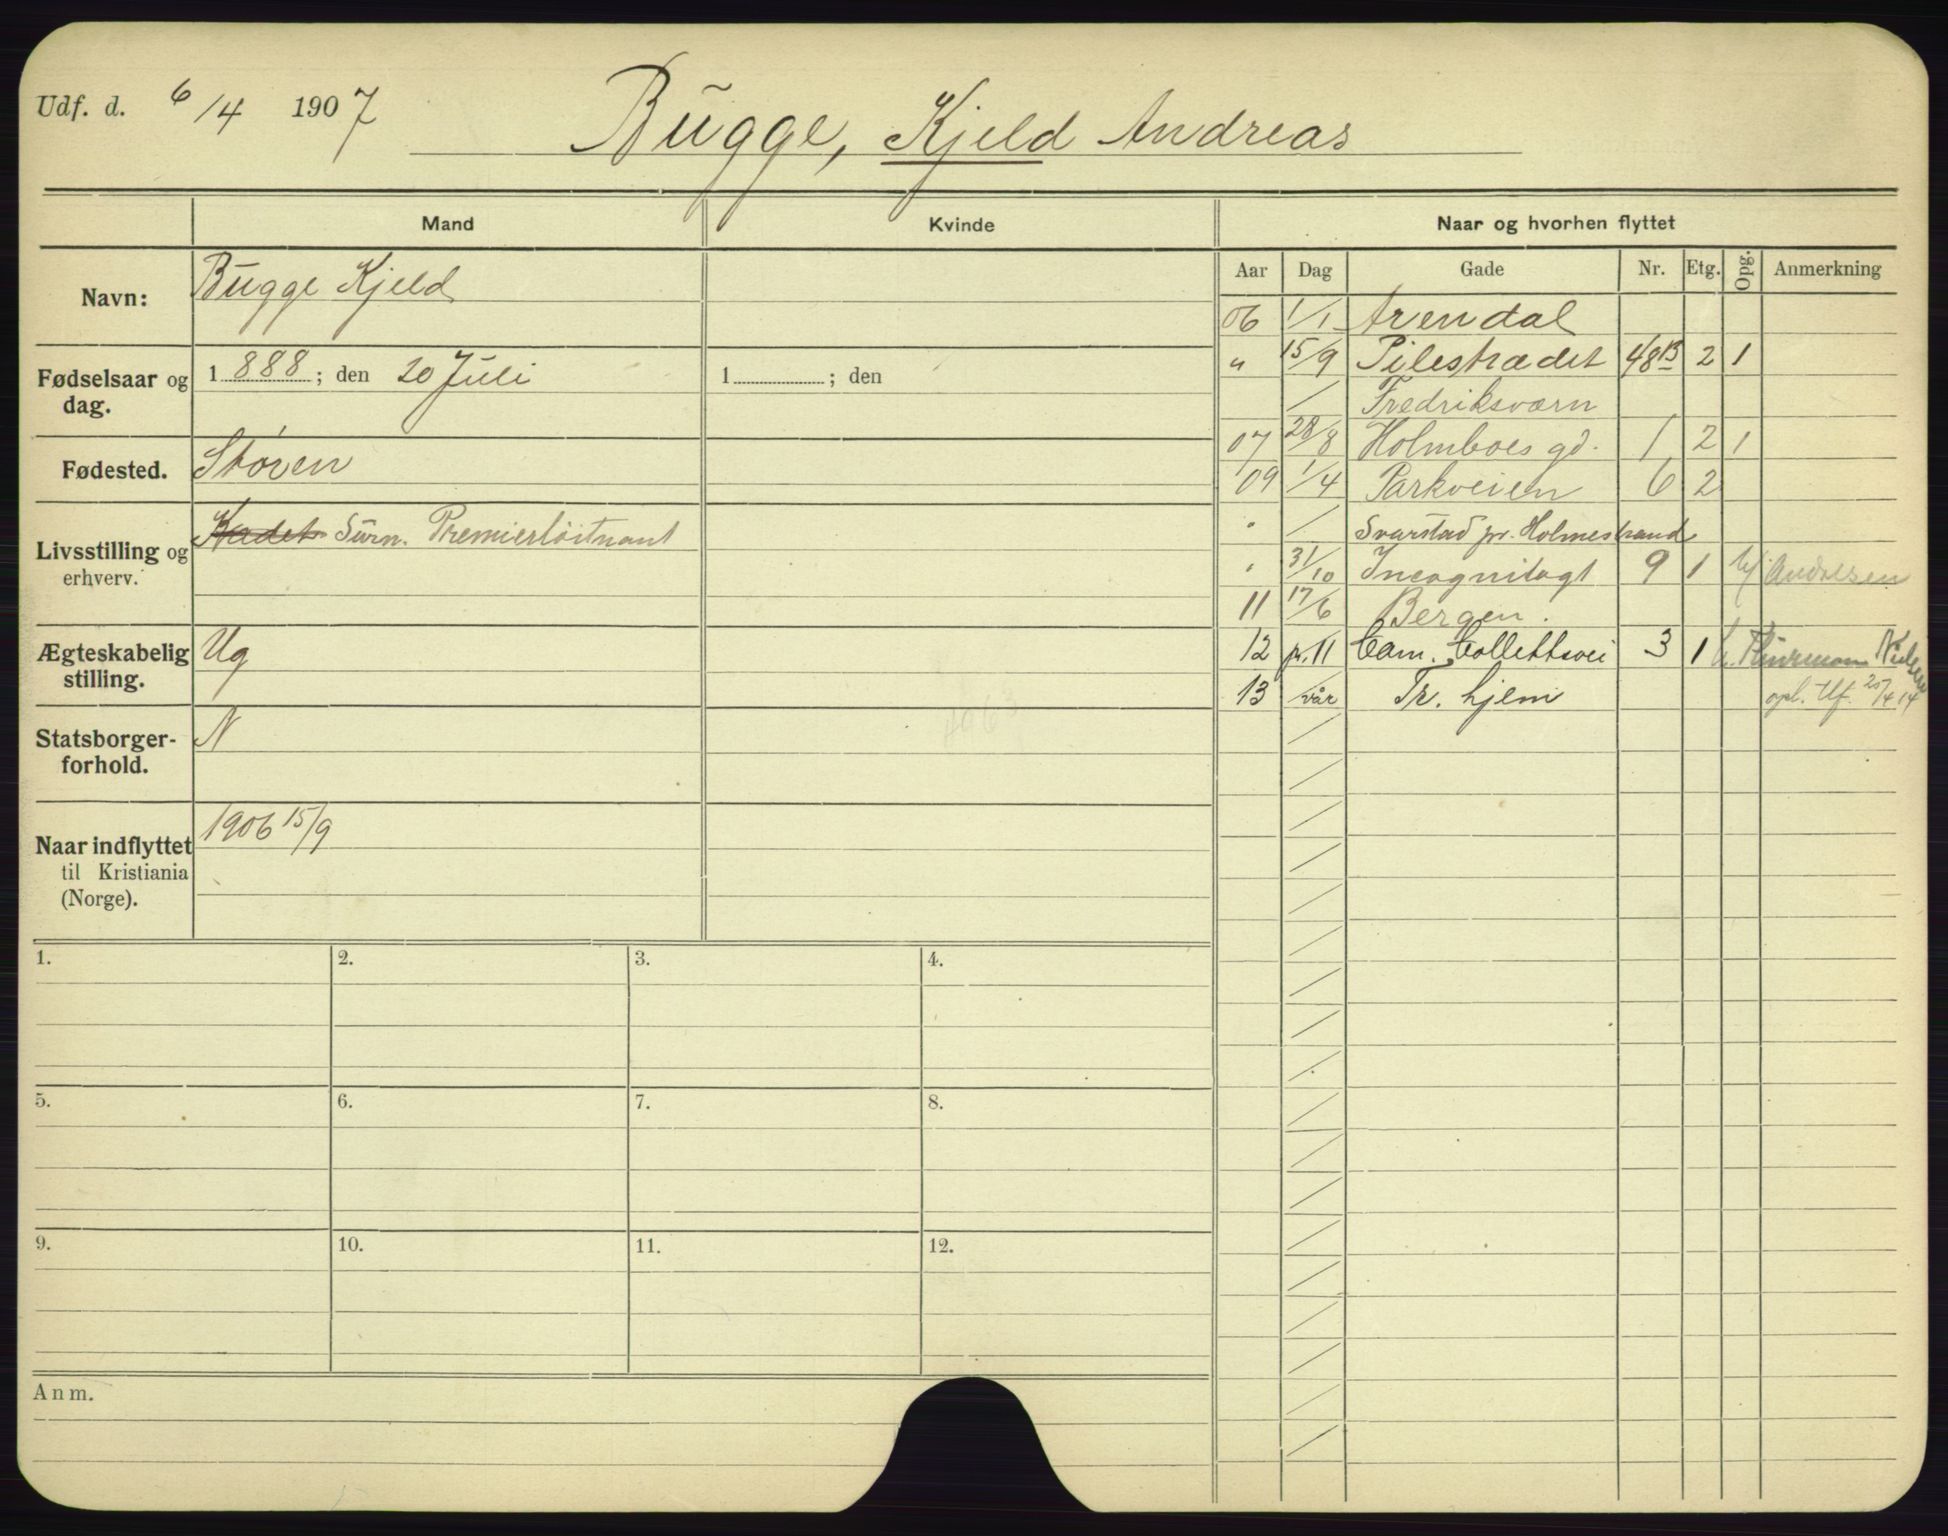 Udf. d. 6/4 1907
Bugge, Kjeld Andreas
Mand
Kvinde
Naar og hvorhen flyttet
Navn:
Bugge Kjeld
Fødselsaar og dag.
1888; den 20 Juli
1 ; den
Fødested.
Støren
Livsstilling og erhverv.
Kadet Premierløitnant
Ægteskabelig stilling.
Ug
Statsborgerforhold.
N
Naar indflyttet til Kristiania (Norge).
1906 15/9
Aar Dag Gade Nr. Etg. Opg. Anmerkning
06 1/1 Arendal
" 15/9 Pilestrædet 48B 2 1
/ Fredriksværn
07 28/8 Holmboes gd. 1 2 1
09 1/4 Parkveien 6 2
" / Svarstad pr. Holmestrand
" 31/10 Incognitogt 9 1 h/ Andresen
11 17/6 Bergen.
12 pr. 11 Cam. Collettsvei 3 1 Nielsen
13 vår Tr. hjem opl. Uf. 25/4 14
1.
2.
3.
4.
5.
6.
7.
8.
9.
10.
11.
12.
Anm.